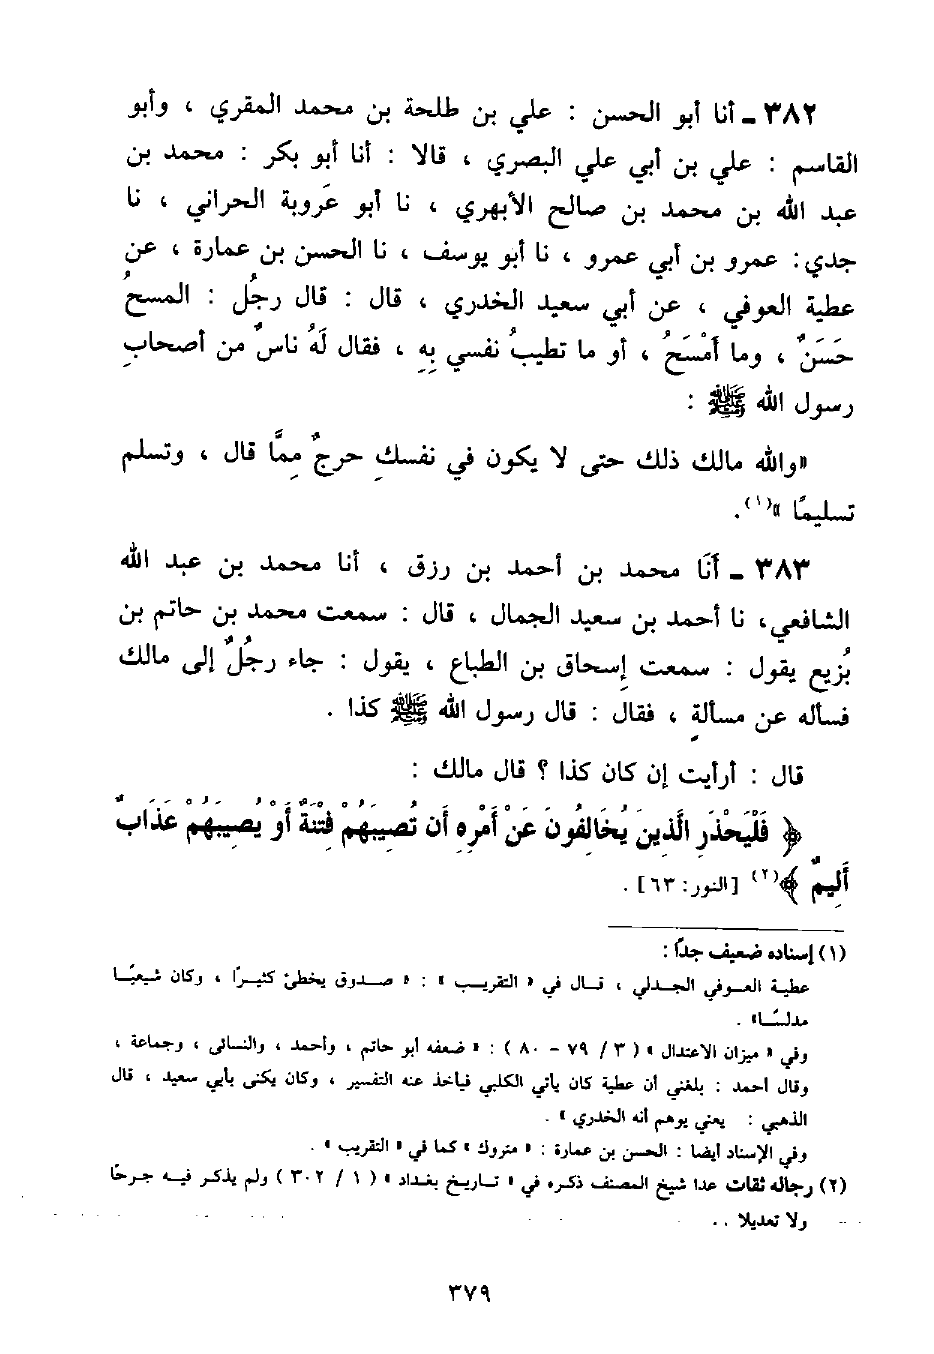 ٣٨٢ ـ أنا أبو الحسن : علي بن طلحة بن محمد المقري ، وأبو
القاسم : علي بن أبي علي البصري ، قالا : أنا أبو بكر : محمد بن
عبد الله بن محمد بن صالح الأبهري ، نا أبو عَروبة الحراني ، نا
جدي : عمرو بن أبي عمرو ، نا أبو يوسف ، نا الحسن بن عمارة ، عن
عطية العوفي ، عن أبي سعيد الخدري ، قال : قال رجُل : المسحُ
حَسَنٌ ، وما أَمْسَحُ ، أو ما تطيبُ نفسي بِهِ ، فقال لَهُ ناسٌ من أصحابِ
رسول الله ﷺ :
«والله مالك ذلك حتى لا يكون في نفسكِ حرجٌ مِمَّا قال ، وتسلم
تسليمًا »(١).
٣٨٣ ـ أَنَا محمد بن أحمد بن رزق ، أنا محمد بن عبد الله
الشافعي، نا أحمد بن سعيد الجمال ، قال : سمعت محمد بن حاتم بن
بُزيع يقول : سمعت إِسحاق بن الطباع ، يقول : جاء رجُلٌ إلى مالك
فسأله عن مسألةٍ ، فقال : قال رسول الله ﷺ كذا .
قال : أرأيت إن كان كذا ؟ قال مالك :
﴿ فَلْيَحْذَرِ الَّذِينَ يُخَالِفُونَ عَنْ أَمْرِهِ أَن تُصِيبَهُمْ فِتْنَةٌ أَوْ يُصِيبَهُمْ عَذَابٌ
أَلِيمٌ ﴾(٢) [النور: ٦٣] .
(١) إسناده ضعيف جدًا :
عطية العوفي الجدلي ، قال في « التقريب » : « صدوق يخطئ كثيرًا ، وكان شيعيًا
مدلسًا» .
وفي « ميزان الاعتدال » ( ٣ / ٧٩ - ٨٠ ) : « ضعفه أبو حاتم ، وأحمد ، والنسائى ، وجماعة ،
وقال أحمد : بلغني أن عطية كان يأتي الكلبي فيأخذ عنه التفسير ، وكان يكنى بأبي سعيد ، قال
الذهبي : يعني يوهم أنه الخدري » .
وفي الإسناد أيضا : الحسن بن عمارة : « متروك » كما في « التقريب » .
(٢) رجاله ثقات عدا شيخ المصنف ذكره في « تاريخ بغداد » ( ١ / ٣٠٢ ) ولم يذكر فيه جرحًا
ولا تعديلا ..
٣٧٩